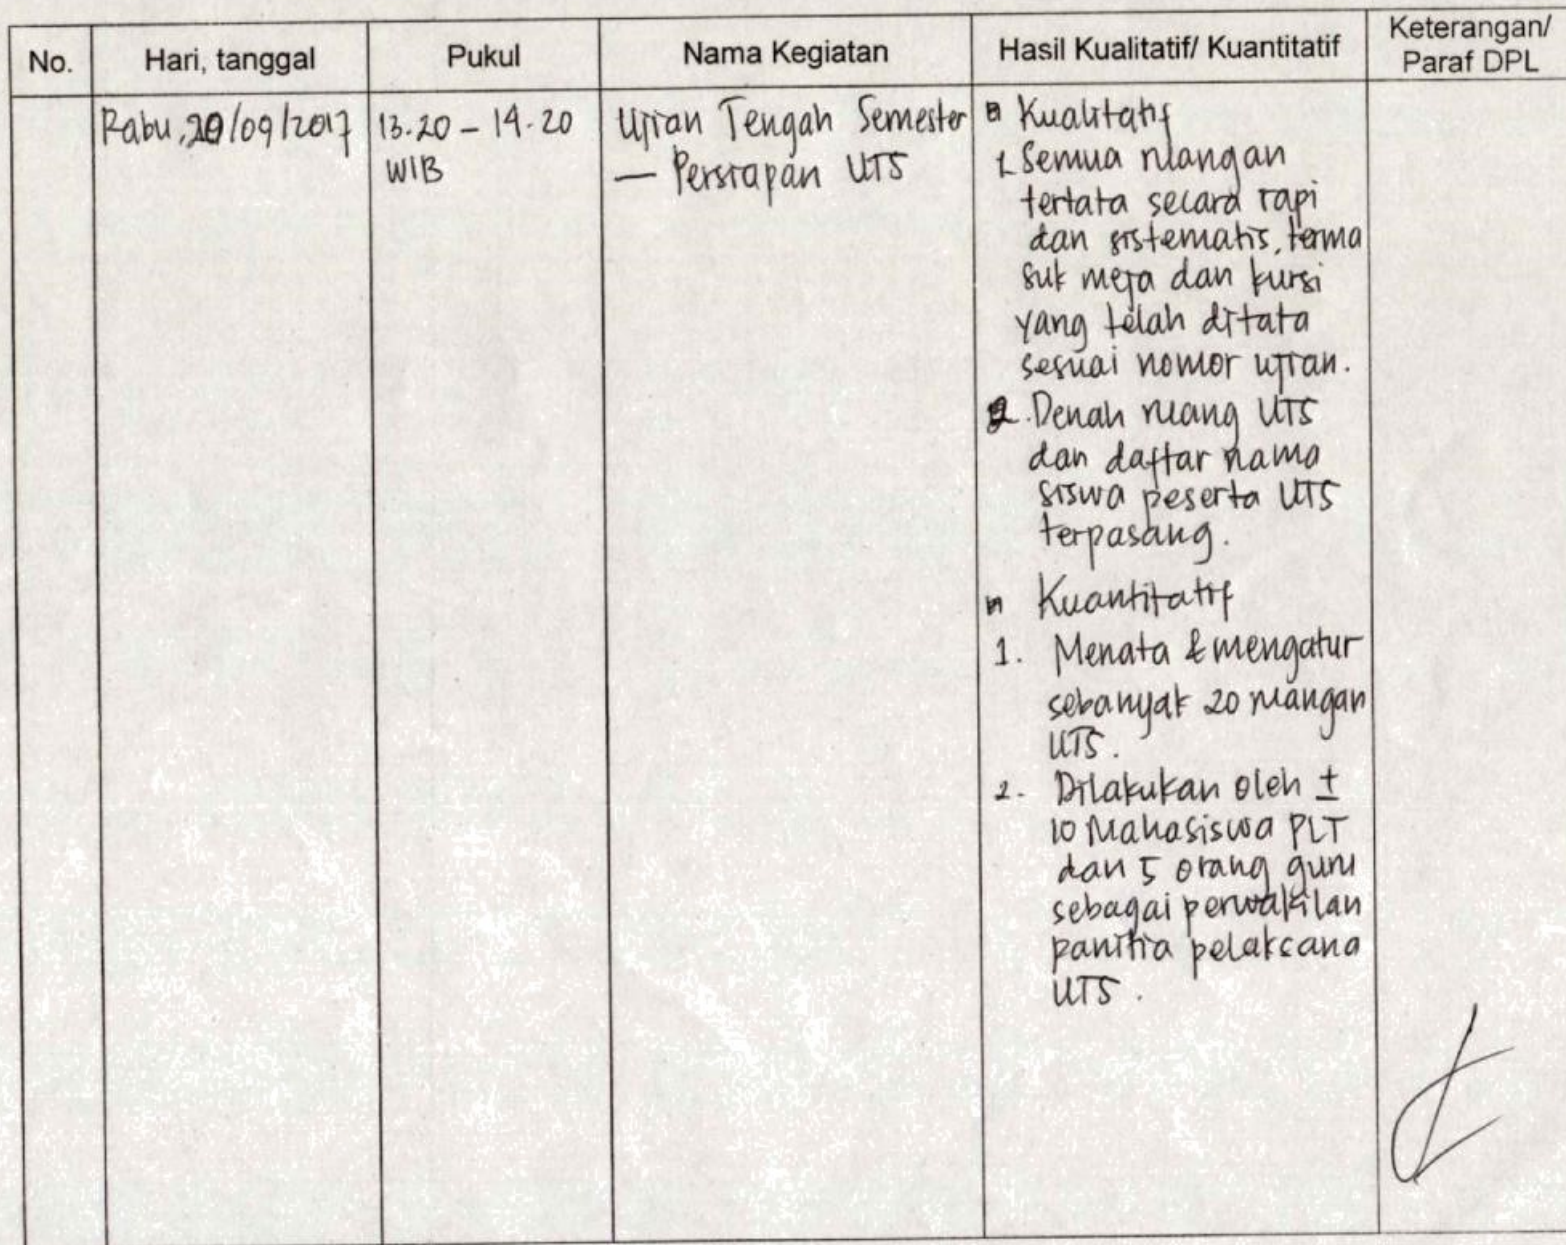 No.
Hari, tanggal
Pukul
Nama Kegiatan
Hasil Kualitatif/ Kuantitatif
Keterangan/
Paraf DPL
Rabu, 20/09/2017
13.20 - 14.20
WIB
Ujian Tengah Semester
— Persiapan UTS
Kualitatif
1. Semua ruangan
tertata secara rapi
dan sistematis, terma
suk meja dan kursi
yang telah ditata
sesuai nomor ujian.
2. Denah ruang UTS
dan daftar nama
siswa peserta UTS
terpasang.
Kuantitatif
1. Menata & mengatur
sebanyak 20 ruangan
UTS.
2. Dilakukan oleh ±
10 Mahasiswa PLT
dan 5 orang guru
sebagai perwakilan
panitia pelaksana
UTS.